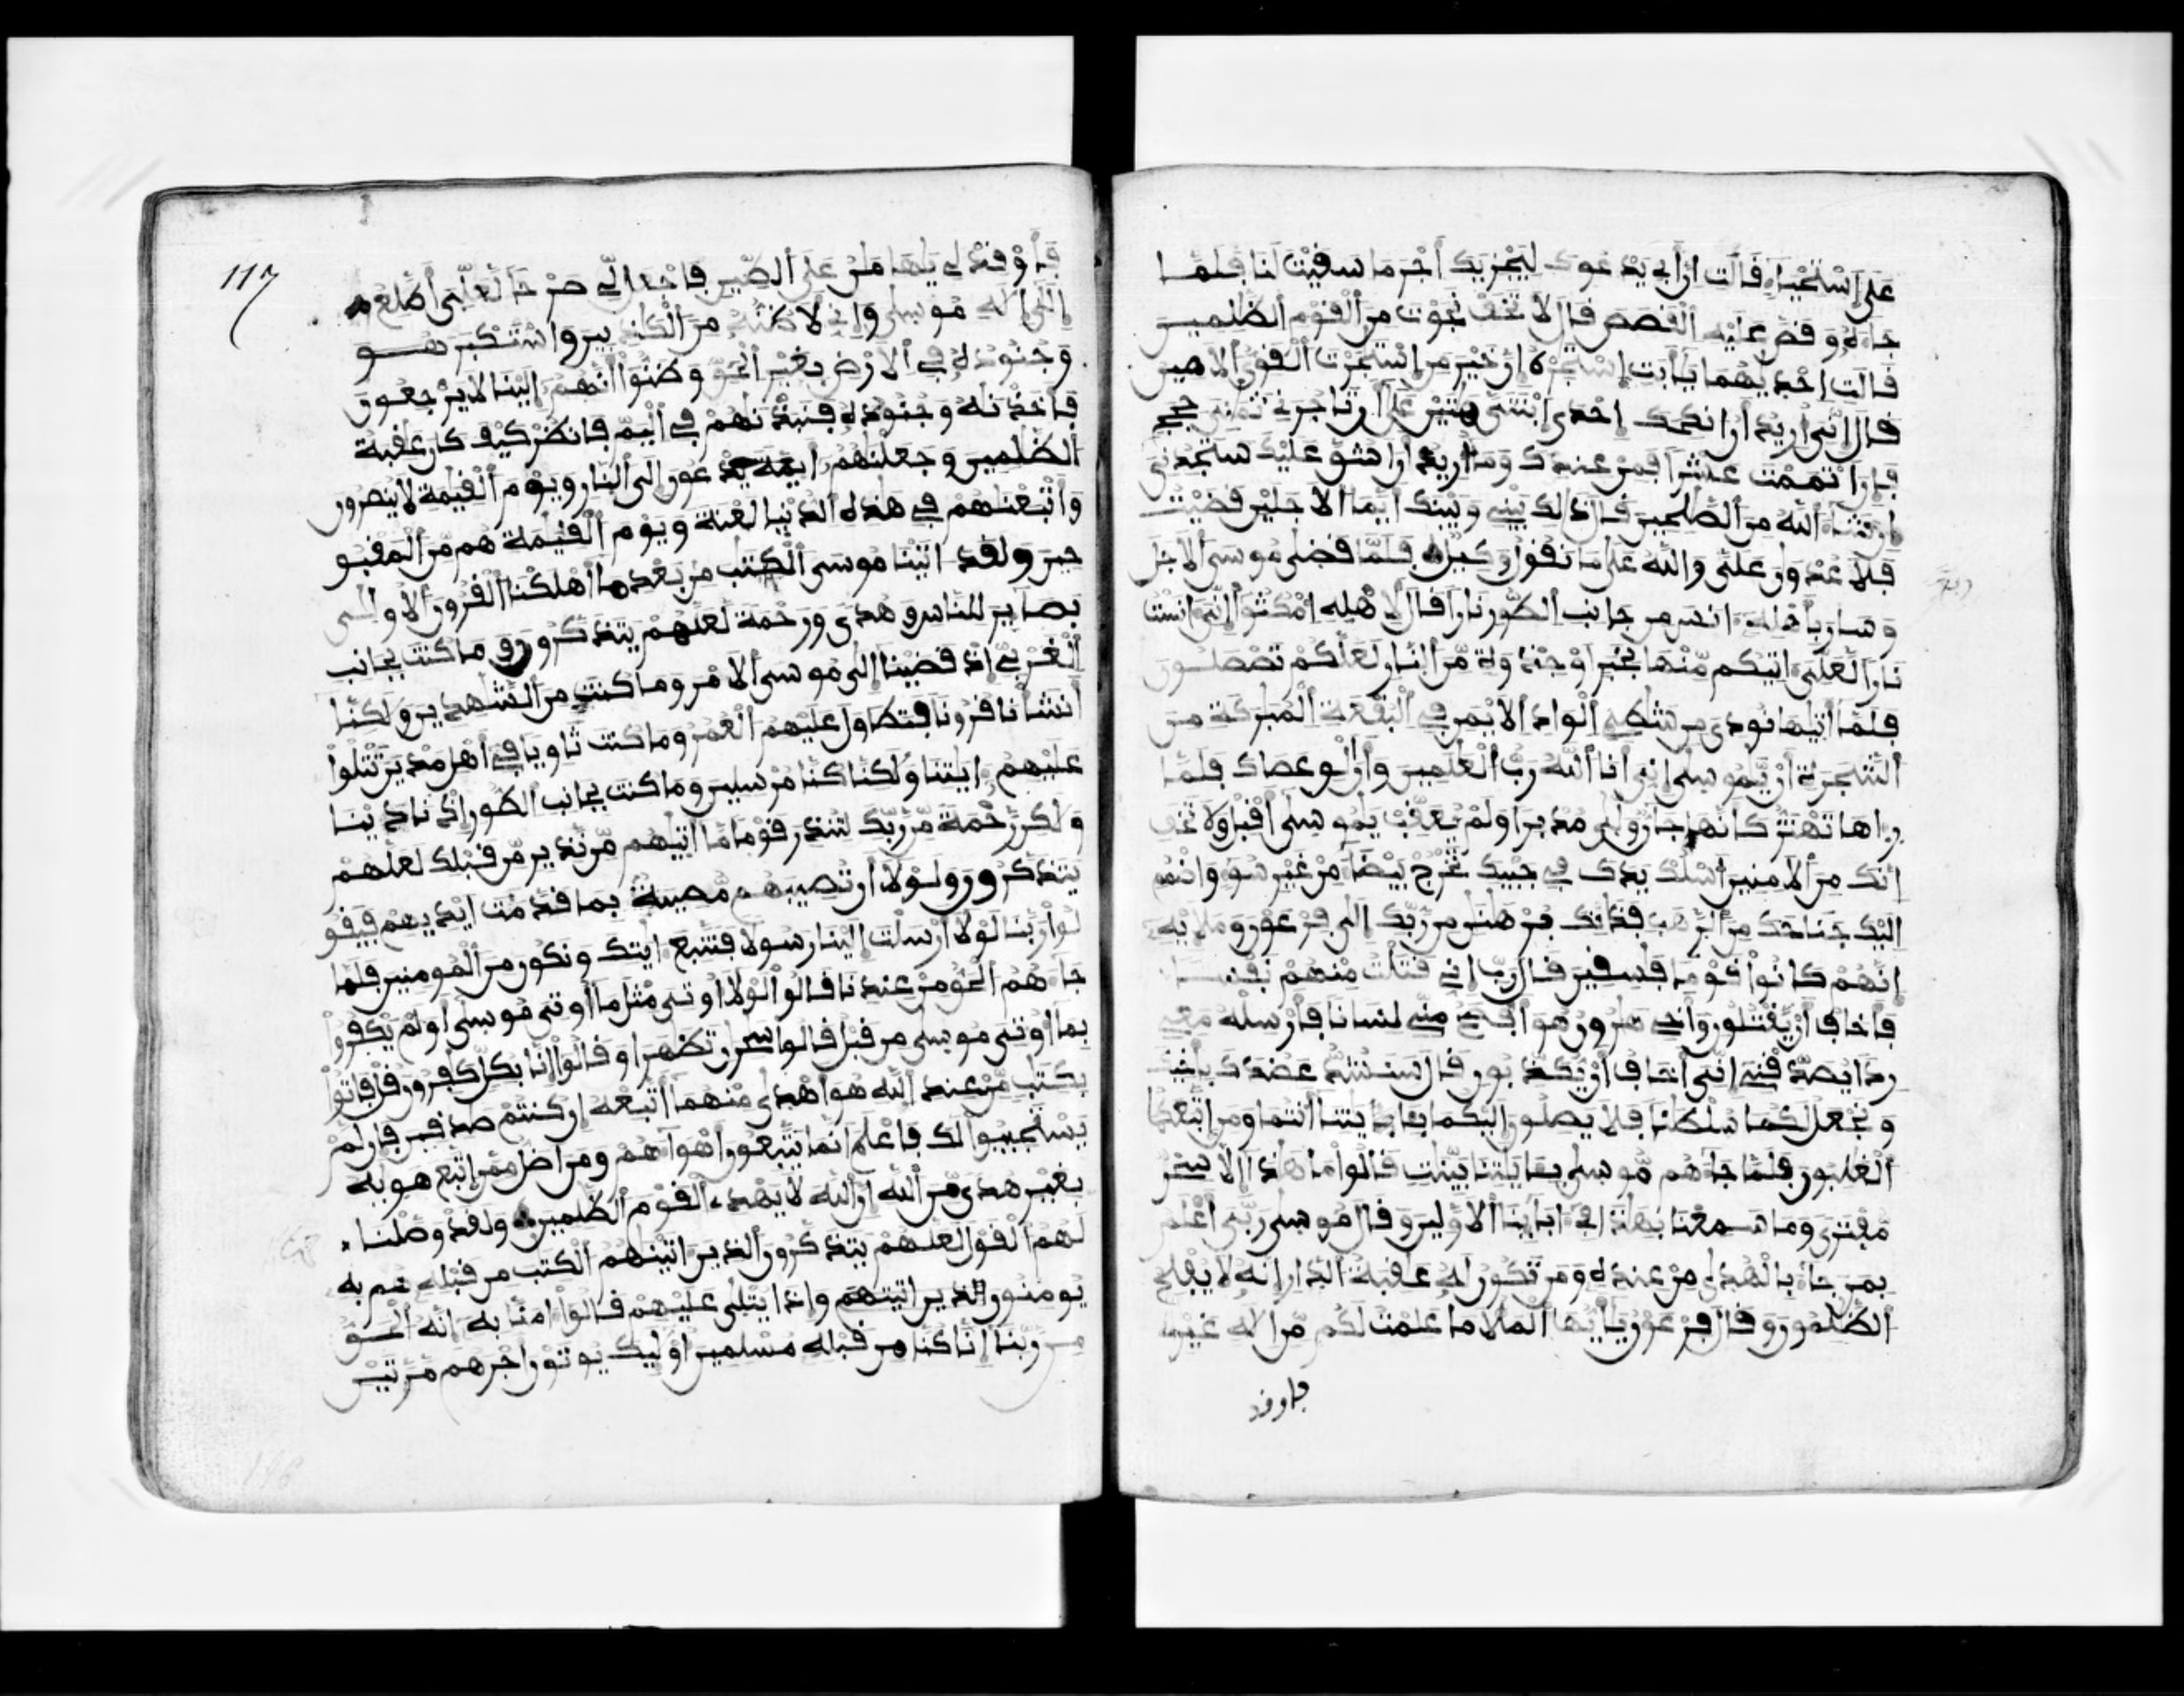 على استحيا قالت ان ابي يدعوك ليجزيك اجر ما سقيت لنا فلما
جاءه وقص عليه القصص قال لا تخف نجوت من القوم الظلمين
قالت احديهما يابت استجره ان خير من استجرت القوي الامين
قال اني اريد ان انكحك احدى ابنتي هتين على ان تاجرني ثمني حجج
فان اتممت عشرا فمن عندك وما اريد ان اشق عليك ستجدني
ان شا الله من الصلحين قال ذلك بيني وبينك ايما الاجلين قضيت
فلا عدون علي والله على ما نقول وكيل فلما قضى موسى الاجل
وسار باهله انس من جانب الطور نارا قال لاهله امكثوا اني انست
نارا لعلي اتيكم منها بخبر او جذوة من النار لعلكم تصطلون
فلما اتيها نودي من شطي الواد الايمن في البقعة المبركة من
الشجرة ان يموسى اني انا الله رب العلمين وان الق عصاك فلما
راها تهتز كانها جان ولى مدبرا ولم يعقب يموسى اقبل ولا تخف
انك من الامنين اسلك يدك في جيبك تخرج بيضا من غير سو واضمم
اليك جناحك من الرهب فذنك برهنن من ربك الى فرعون وملايه
انهم كانوا قوما فسقين قال رب اني قتلت منهم نفسا
فاخاف ان يقتلون واخي هرون هو افصح مني لسانا فارسله معي
ردا يصدقني اني اخاف ان يكذبون قال سنشد عضدك باخيك
ونجعل لكما سلطنا فلا يصلون اليكما بايتنا انتما ومن اتبعكما
الغلبون فلما جاهم موسى بايتنا بينت قالوا ما هذا الا سحر
مفترى وما سمعنا بهذا في اباينا الاولين وقال موسى ربي اعلم
بمن جا بالهدى من عنده ومن تكون له عقبة الدار انه لا يفلح
الظلمون وقال فرعون يايها الملا ما علمت لكم من اله غيري
فاوقد
117
فاوقد لي يهامن على الطين فاجعل لي صرحا لعلي اطلع
الى اله موسى واني لاظنه من الكذبين واستكبر هو
وجنوده في الارض بغير الحق وظنوا انهم الينا لا يرجعون
فاخذنه وجنوده فنبذنهم في اليم فانظر كيف كان عقبة
الظلمين وجعلنهم ايمة يدعون الى النار ويوم القيمة لا ينصرون
واتبعنهم في هذه الدنيا لعنة ويوم القيمة هم من المقبو
حين ولقد اتينا موسى الكتب من بعد ما اهلكنا القرون الاولى
بصاير للناس وهدى ورحمة لعلهم يتذكرون وما كنت بجانب
الغربي اذ قضينا الى موسى الامر وما كنت من الشهدين ولكنا
انشانا قرونا فتطاول عليهم العمر وما كنت ثاويا في اهل مدين تتلوا
عليهم ايتنا ولكنا كنا مرسلين وما كنت بجانب الطور اذ نادينا
ولكن رحمة من ربك لتنذر قوما ما اتيهم من نذير من قبلك لعلهم
يتذكرون ولولا ان تصيبهم مصيبة بما قدمت ايديهم فيقو
لوا ربنا لولا ارسلت الينا رسولا فنتبع ايتك ونكون من المومنين فلما
جاهم الحق من عندنا قالوا لولا اوتي مثل ما اوتي موسى اولم يكفروا
بما اوتي موسى من قبل قالوا سحرن تظهرا وقالوا انا بكل كفرون قل فاتوا
بكتب من عند الله هو اهدى منهما اتبعه ان كنتم صدقين فان لم
يستجيبوا لك فاعلم انما يتبعون اهواهم ومن اضل ممن اتبع هويه
بغير هدى من الله ان الله لا يهدي القوم الظلمين ولقد وصلنا
لهم القول لعلهم يتذكرون الذين اتينهم الكتب من قبله هم به
يومنون الذين اتيتهم واذا يتلى عليهم قالوا امنا به انه الحق
من ربنا انا كنا من قبله مسلمين اوليك يوتون اجرهم مرتين